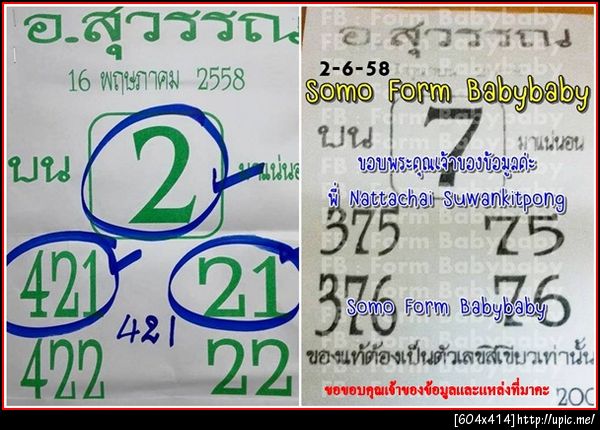 อ.สุวรรณ
16 พฤษภาคม 2558
บน 2 มาแน่นอน
421 21
421
422 22
FB : Form Babybaby
อ.สุวรรณ
2-6-58
Somo Form Babybaby
บน 7 มาแน่นอน
ขอบพระคุณเจ้าของข้อมูลค่ะ
พี่ Nattachai Suwankitpong
375 75
FB : Form Babybaby
376 76
Somo Form Babybaby
ของแท้ต้องเป็นตัวเลขสีเขียวเท่านั้น
ขอขอบคุณเจ้าของข้อมูลและแหล่งที่มาคะ
200
[604x414]http://upic.me/